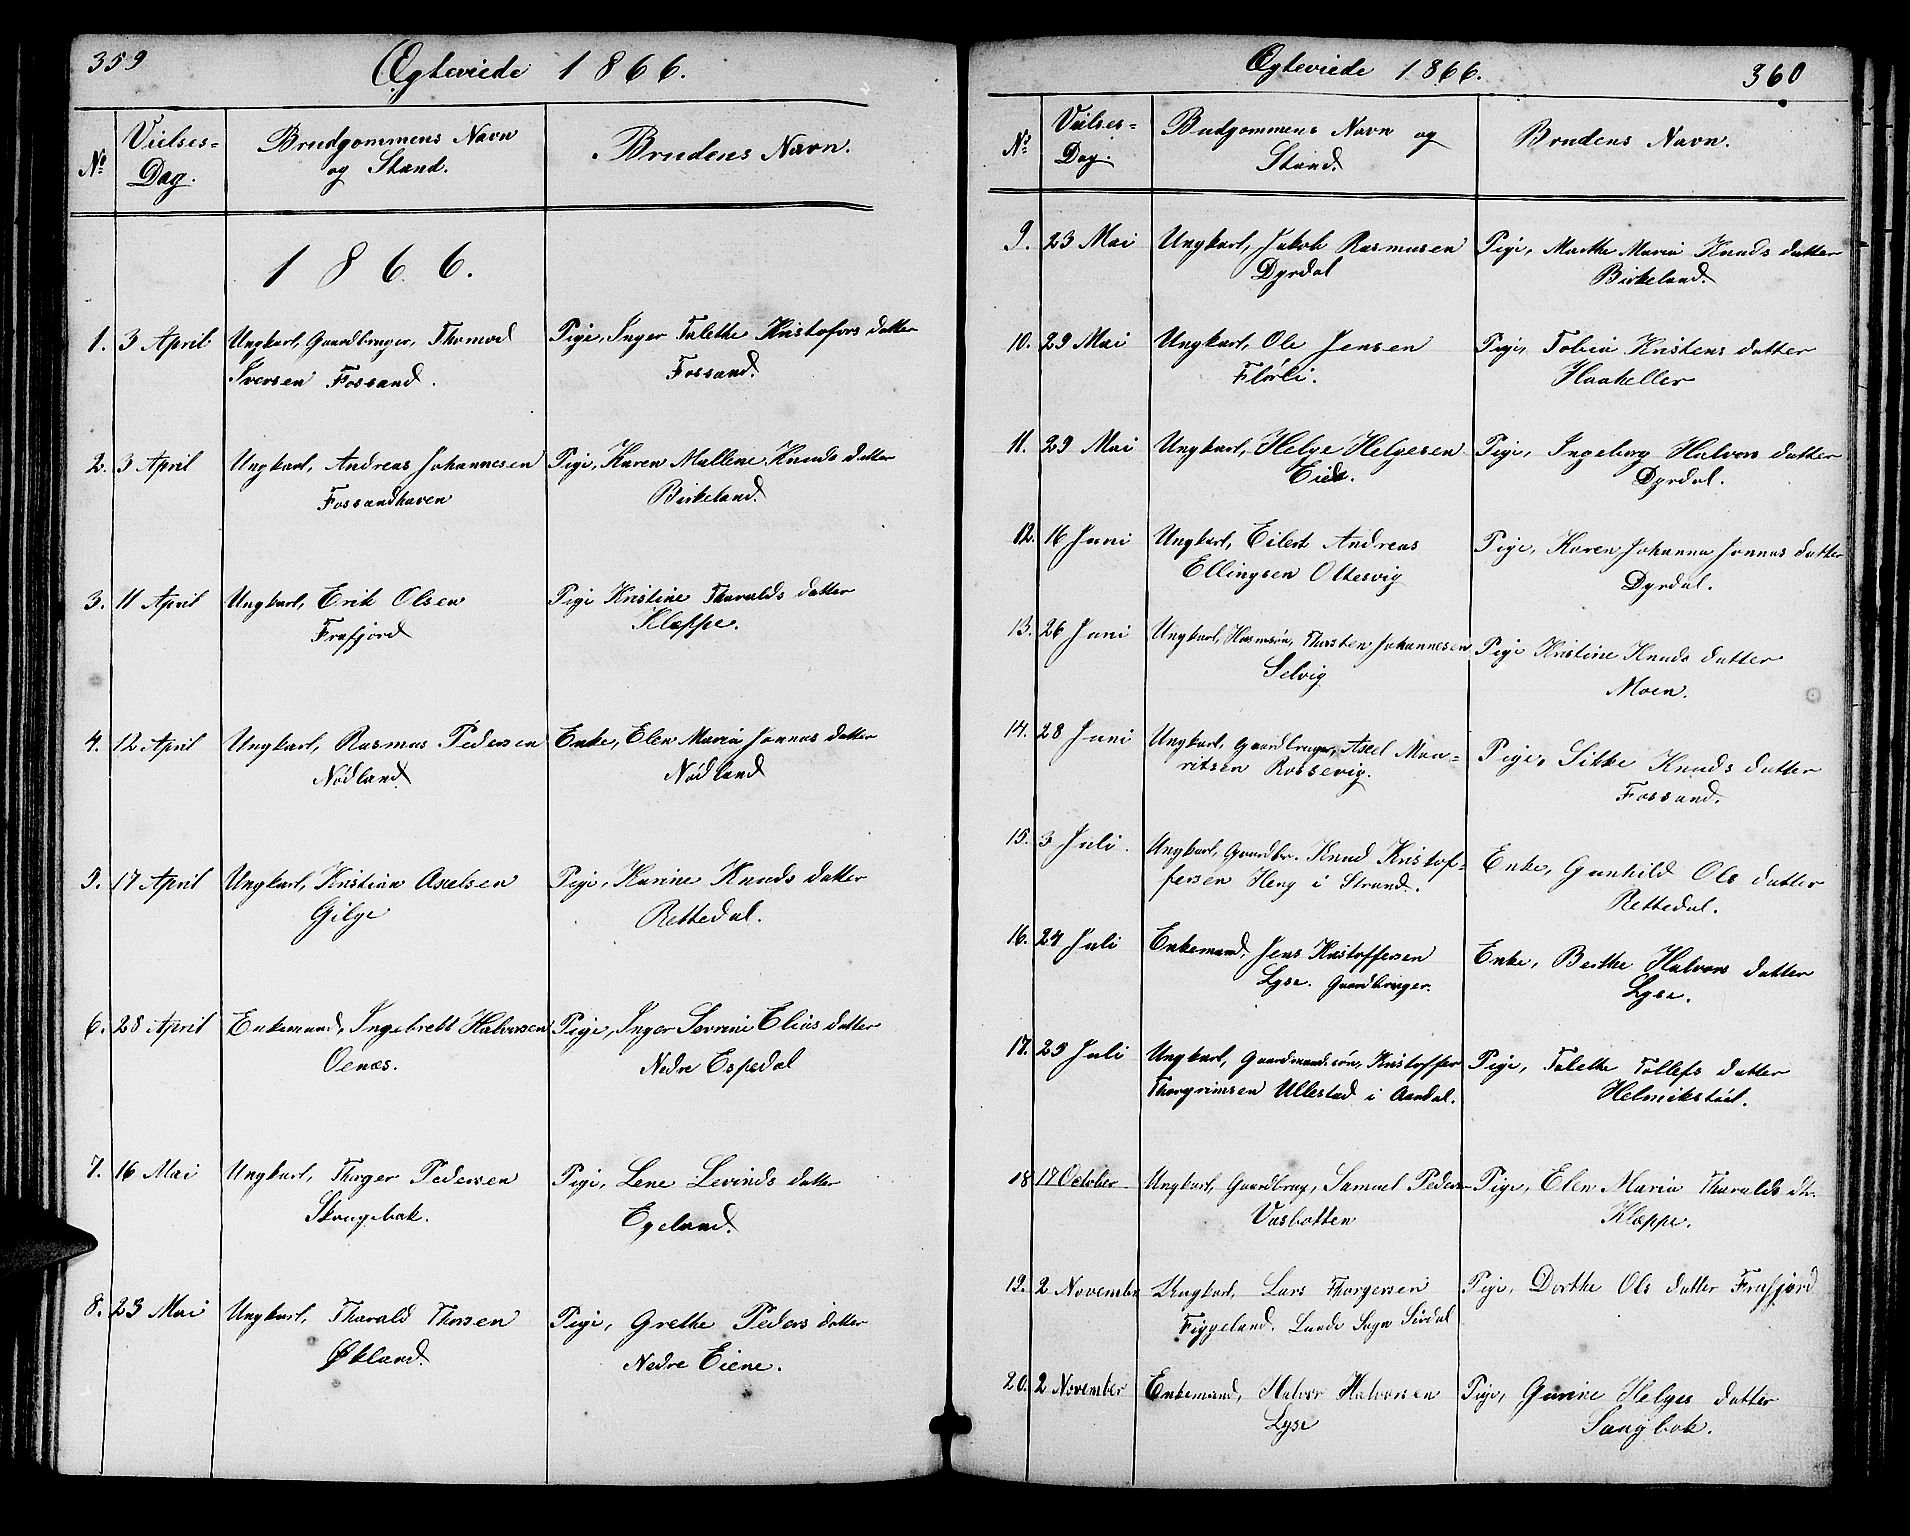 359
Ægteviede 1866.
No
Vielses=
Dag.
Brudgommens Navn
og Stand.
Brudens Navn.
1866.
1. 3 April Ungkarl, Gaardbruger, Thomod Pige, Inger Talethe Kristofers datter
Iversen Fossand. Fossand.
2. 3 April Ungkarl, Andreas Johannesen Pige, Karen Mallene Knuds datter
Fossandhaven Birkeland.
3. 11 April Ungkarl, Erik Olsen Pige Kristine Tharalds datter
Frafjord Klæppe.
4. 12 April Ungkarl, Rasmus Pedersen Enke, Elen Maria Jonnas datter
Nödland Nödland
5. 17 April Ungkarl, Kristian Aselsen Pige, Karine Knuds datter
Gilge Rettedal.
6. 28 April Enkemand, Ingebrett Halvorsen Pige, Inger Serine Elias datter
Oenæs. Nedre Espedal
7. 16 Mai Ungkarl, Thorger Pedersen Pige, Lene Levinds datter
Skougebak. Egeland.
8. 23 Mai Ungkarl, Tharald Thorsen Pige, Grethe Peders datter
Økland. Nedre Eiene.
Ægteviede 1866. 360
No
Vielses=
Dag.
Budgommens Navn og
Stand.
Brudens Navn.
9. 23 Mai Ungkarl, Jakob Rasmusen Pige, Marthe Maria Knuds datter
Dyrdal Birkeland.
10. 29 Mai Ungkarl, Ole Jensen Pige, Tobia Kristens datter
Flörli. Haaheller
11. 29 Mai Ungkarl, Helge Helgesen Pige, Ingeborg Halvors datter
Eide. Dyrdal.
12. 16 Juni Ungkarl, Eilert Andreas Pige, Karen Johanna Jonnas datter
Ellingsen Oltesvig Dyrdal.
13. 26 Juni Ungkarl, Thorsten Johannesen Pige Kristine Knuds datter
Selvig Moen.
14. 28 Juni Ungkarl, Gaardbruger, Axel Mau= Pige, Sikke Knuds datter
ritsen Rossevig. Fossand.
15. 3 Juli. Ungkarl, Gaardbr. Knud Kristof= Enke, Gunhild Ols datter
fersen Heng i Strand. Rettedal.
16. 24 Juli Enkemand, Jens Kristoffersen Enke, Berthe Halvors datter
Lyse. Gaardbruger. Lyse.
17. 25 Juli Ungkarl, Gaardmandssön, Kristoffer Pige, Talethe Tollefs datter
Thorgrimsen Ullestad i Aardal. Helmikstöl.
18 17 October Ungkarl, Gaardbrug, Samuel Pedersen Pige, Elen Maria Tharalds dtr.
Vasbotten Klæppe.
19. 2 November Ungkarl, Lars Thorgersen Pige, Dorthe Ols datter Frafjord
Figgeland. Lunde Sogn Sirdal
20. 2 November Enkemand, Halvor Halvorsen Pige, Gurine Helges datter
Lyse Sangbak.